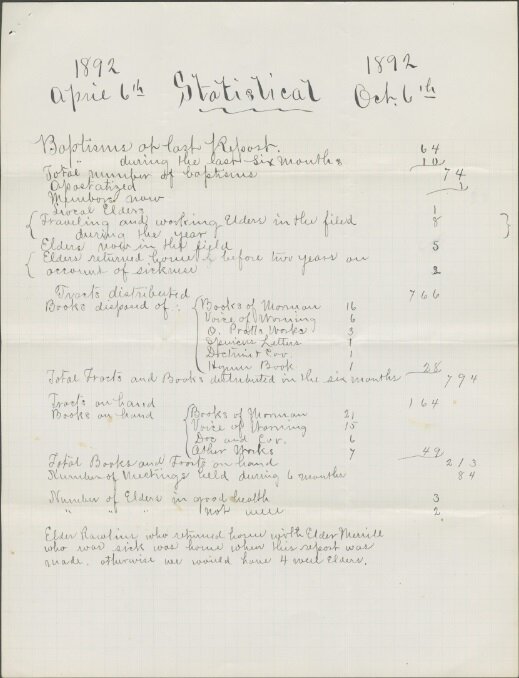 1892 1892
April 6th Statistical Oct. 6th
Baptisms at last Report. 64
" during the last six months 10
Total number of baptisms 74
Apostatized 1
Members now
Local Elders 1
Traveling and working Elders in the filed 8
during the year
Elders now in the field 5
Elders returned home before two years on
account of sickness 2
Tracts distributed 766
Books disposed of: Books of Morman 16
Voice of Warning 6
O. Pratts Works 3
Spencers Letters 1
Doctrin & Cov. 1
Hymn Book 1
28
Total Tracts and Books destributed in the six months 794
Tracts on hand 164
Books on hand Books of Morman 21
Voice of Warning 15
Doc and Cov. 6
Other Works 7
49
Total Books and Tracts on hand 213
Number of Meetings held during 6 months 84
Number of Elders in good health 3
" " " not well 2
Elder Rawlins who returned home with Elder Merrill
who was sick was home when this report was
made, otherwise we would have 4 well Elders.